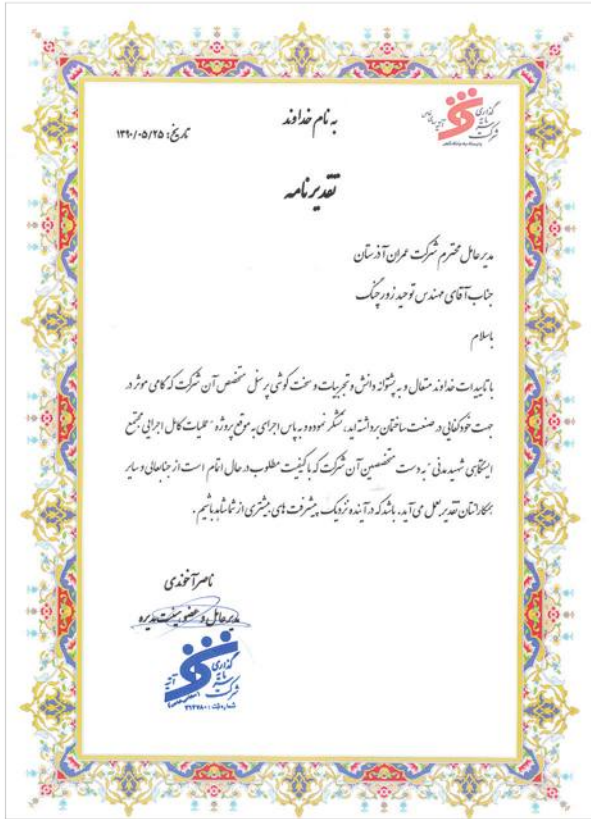 به نام خداوند
تاریخ: ۱۳۹۰/۰۵/۲۵
شرکت سرمایه گذاری
تقدیرنامه
مدیرعامل محترم شرکت عمران آذرستان
جناب آقای مهندس توحید زورچنگ
باسلام
با تاییدات خداوند متعال و به پشتوانه دانش و تجربیات و سخت کوشی پرسنل متخصص آن شرکت که گامی موثر در
جهت خودکفایی در صنعت ساختمان برداشته اید، تشکر نموده و به پاس اجرای به موقع پروژه "عملیات کامل اجرایی مجتمع
ایستگاهی شهید مدنی" به دست متخصصین آن شرکت که با کیفیت مطلوب در حال اتمام است از جنابعالی و سایر
همکارانتان تقدیر بعمل می آید. باشد که در آینده نزدیک پیشرفت های بیشتری از شما شاهد باشیم.
ناصر آخوندی
مدیرعامل و عضو هیئت مدیره
شرکت سرمایه گذاری آتیه
(سهامی خاص)
شماره ثبت: ۳۹۳۷۸۰